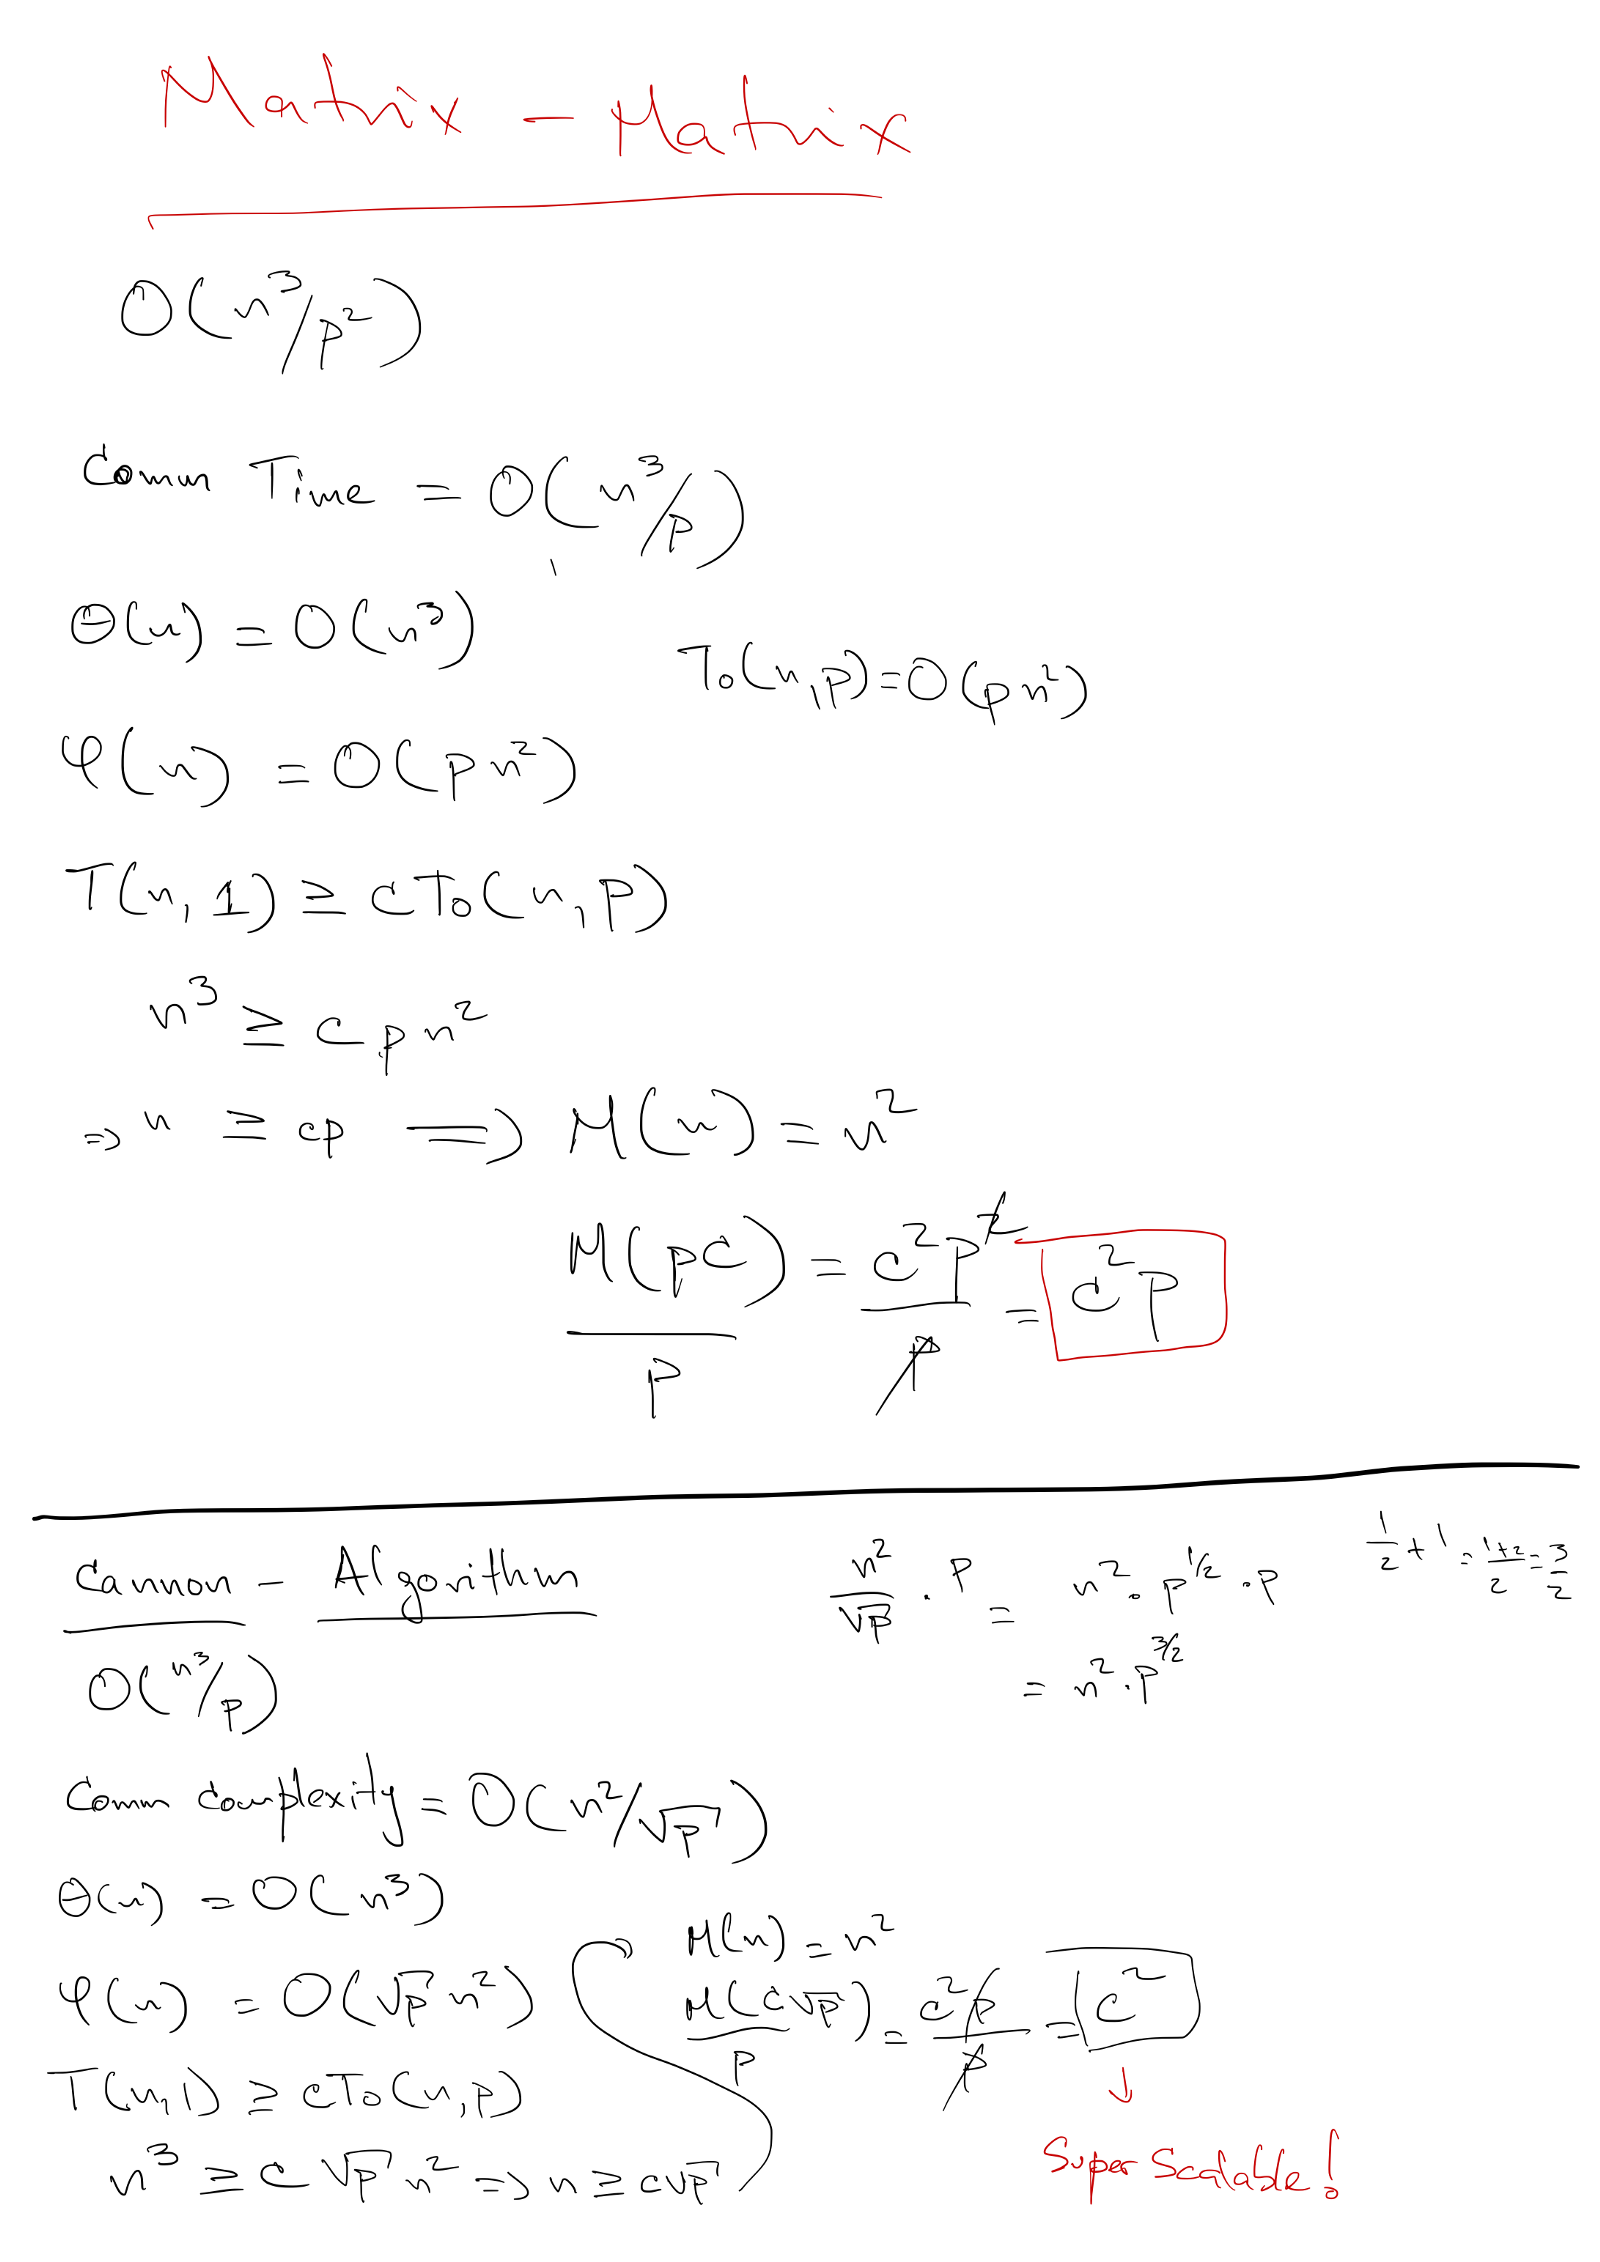 Matrix - Matrix
O(n³/p²)
Comm Time = O(n³/p)
Θ(n) = O(n³)
To(n,p) = O(pn²)
φ(n) = O(pn²)
T(n,1) ≥ cTo(n,p)
n³ ≥ cpn²
⇒ n ≥ cp ⟹ M(n) = n²
M(pc)/p = c²p²/p = c²p
Cannon - Algorithm
n²/√p · p = n² · p^1/2 · p
1/2 + 1 = 1+2/2 = 3/2
= n² · p^3/2
O(n³/p)
Comm complexity = O(n²/√p)
Θ(n) = O(n³)
φ(n) = O(√p n²)
T(n,1) ≥ cTo(n,p)
n³ ≥ c√p n² ⇒ n ≥ c√p
M(n) = n²
M(c√p)/p = c²p/p = c²
↓
Super Scalable!